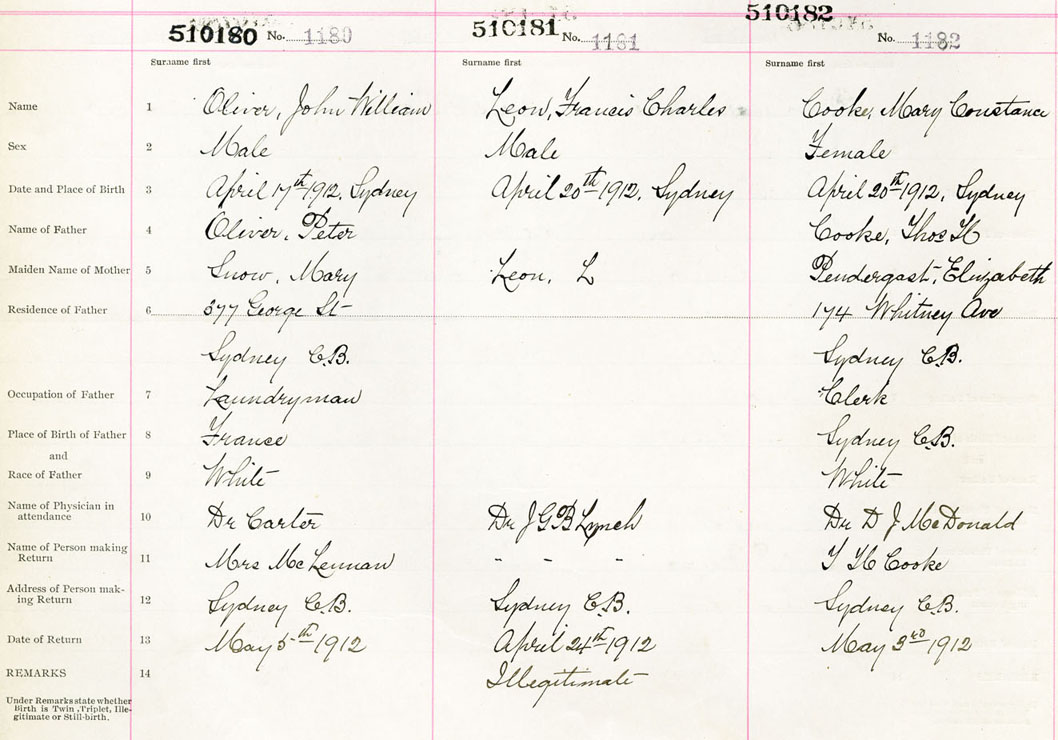 510180 No. 1180 510181 No. 1181 510182 No. 1182
Surname first Surname first Surname first
Name 1 Oliver, John William Leon, Francis Charles Cooke, Mary Constance
Sex 2 Male Male Female
Date and Place of Birth 3 April 17th 1912, Sydney April 20th 1912, Sydney April 20th 1912, Sydney
Name of Father 4 Oliver, Peter Cooke, Thos H
Maiden Name of Mother 5 Snow, Mary Leon, L Pendergast, Elizabeth
Residence of Father 6 377 George St 174 Whitney Ave
Sydney C.B. Sydney C.B.
Occupation of Father 7 Laundryman Clerk
Place of Birth of Father 8 France Sydney C.B.
and
Race of Father 9 White White
Name of Physician in
attendance 10 Dr Carter Dr J G B Lynch Dr D J McDonald
Name of Person making
Return 11 Mrs McLennan - - - T H Cooke
Address of Person mak-
ing Return 12 Sydney C.B. Sydney C.B. Sydney C.B.
Date of Return 13 May 5th 1912 April 24th 1912 May 3rd 1912
REMARKS 14 Illegitimate
Under Remarks state whether
Birth is Twin, Triplet, Ille-
gitimate or Still-birth.